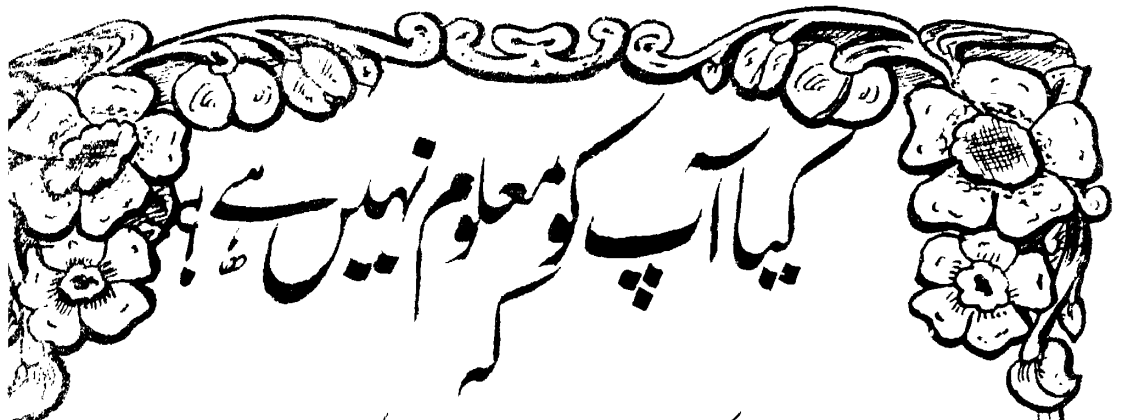 کیا آپ کو معلوم نہیں ہے؟
کہ